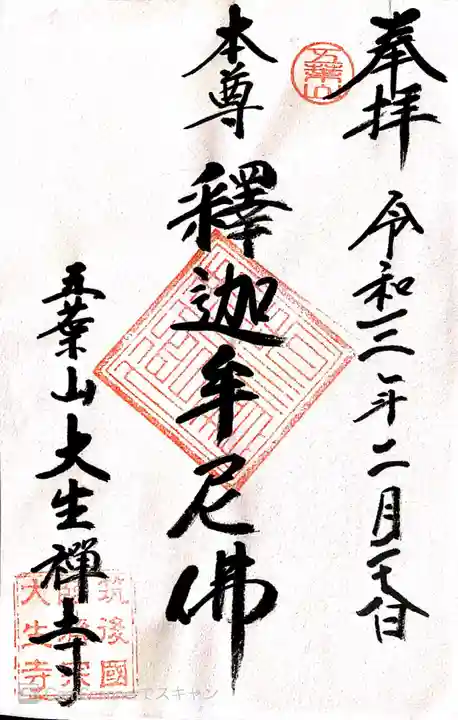 奉拝
令和三年二月
五葉山
本尊
釋迦牟尼佛
五葉山大生禅寺
筑後國
大生寺
でスキャン